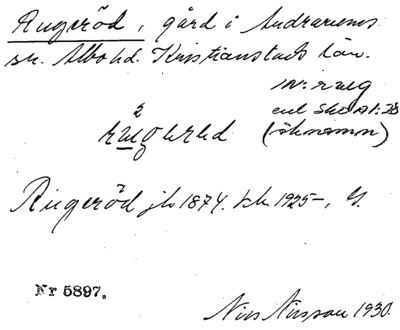 Rugeröd, gård i Andrarums
sn. Albo hd. Kristianstads län.
enl Sko A1:28
(öknamn)
Rugeröd jb 1874. kb. 1925-, G.
Nr 5897.
Nils Nilsson 1930.